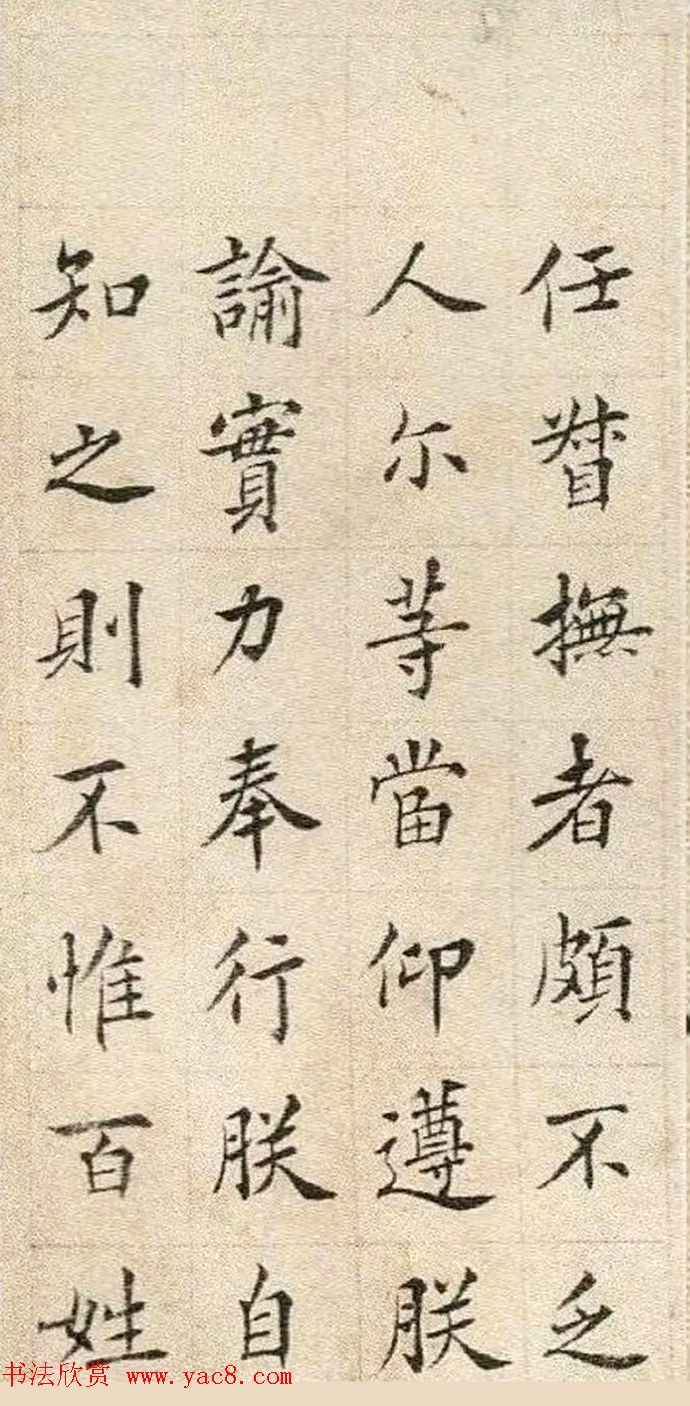 任督撫者頗不乏
人尔等當仰遵朕
諭實力奉行朕自
知之則不惟百姓
书法欣赏 www.yac8.com